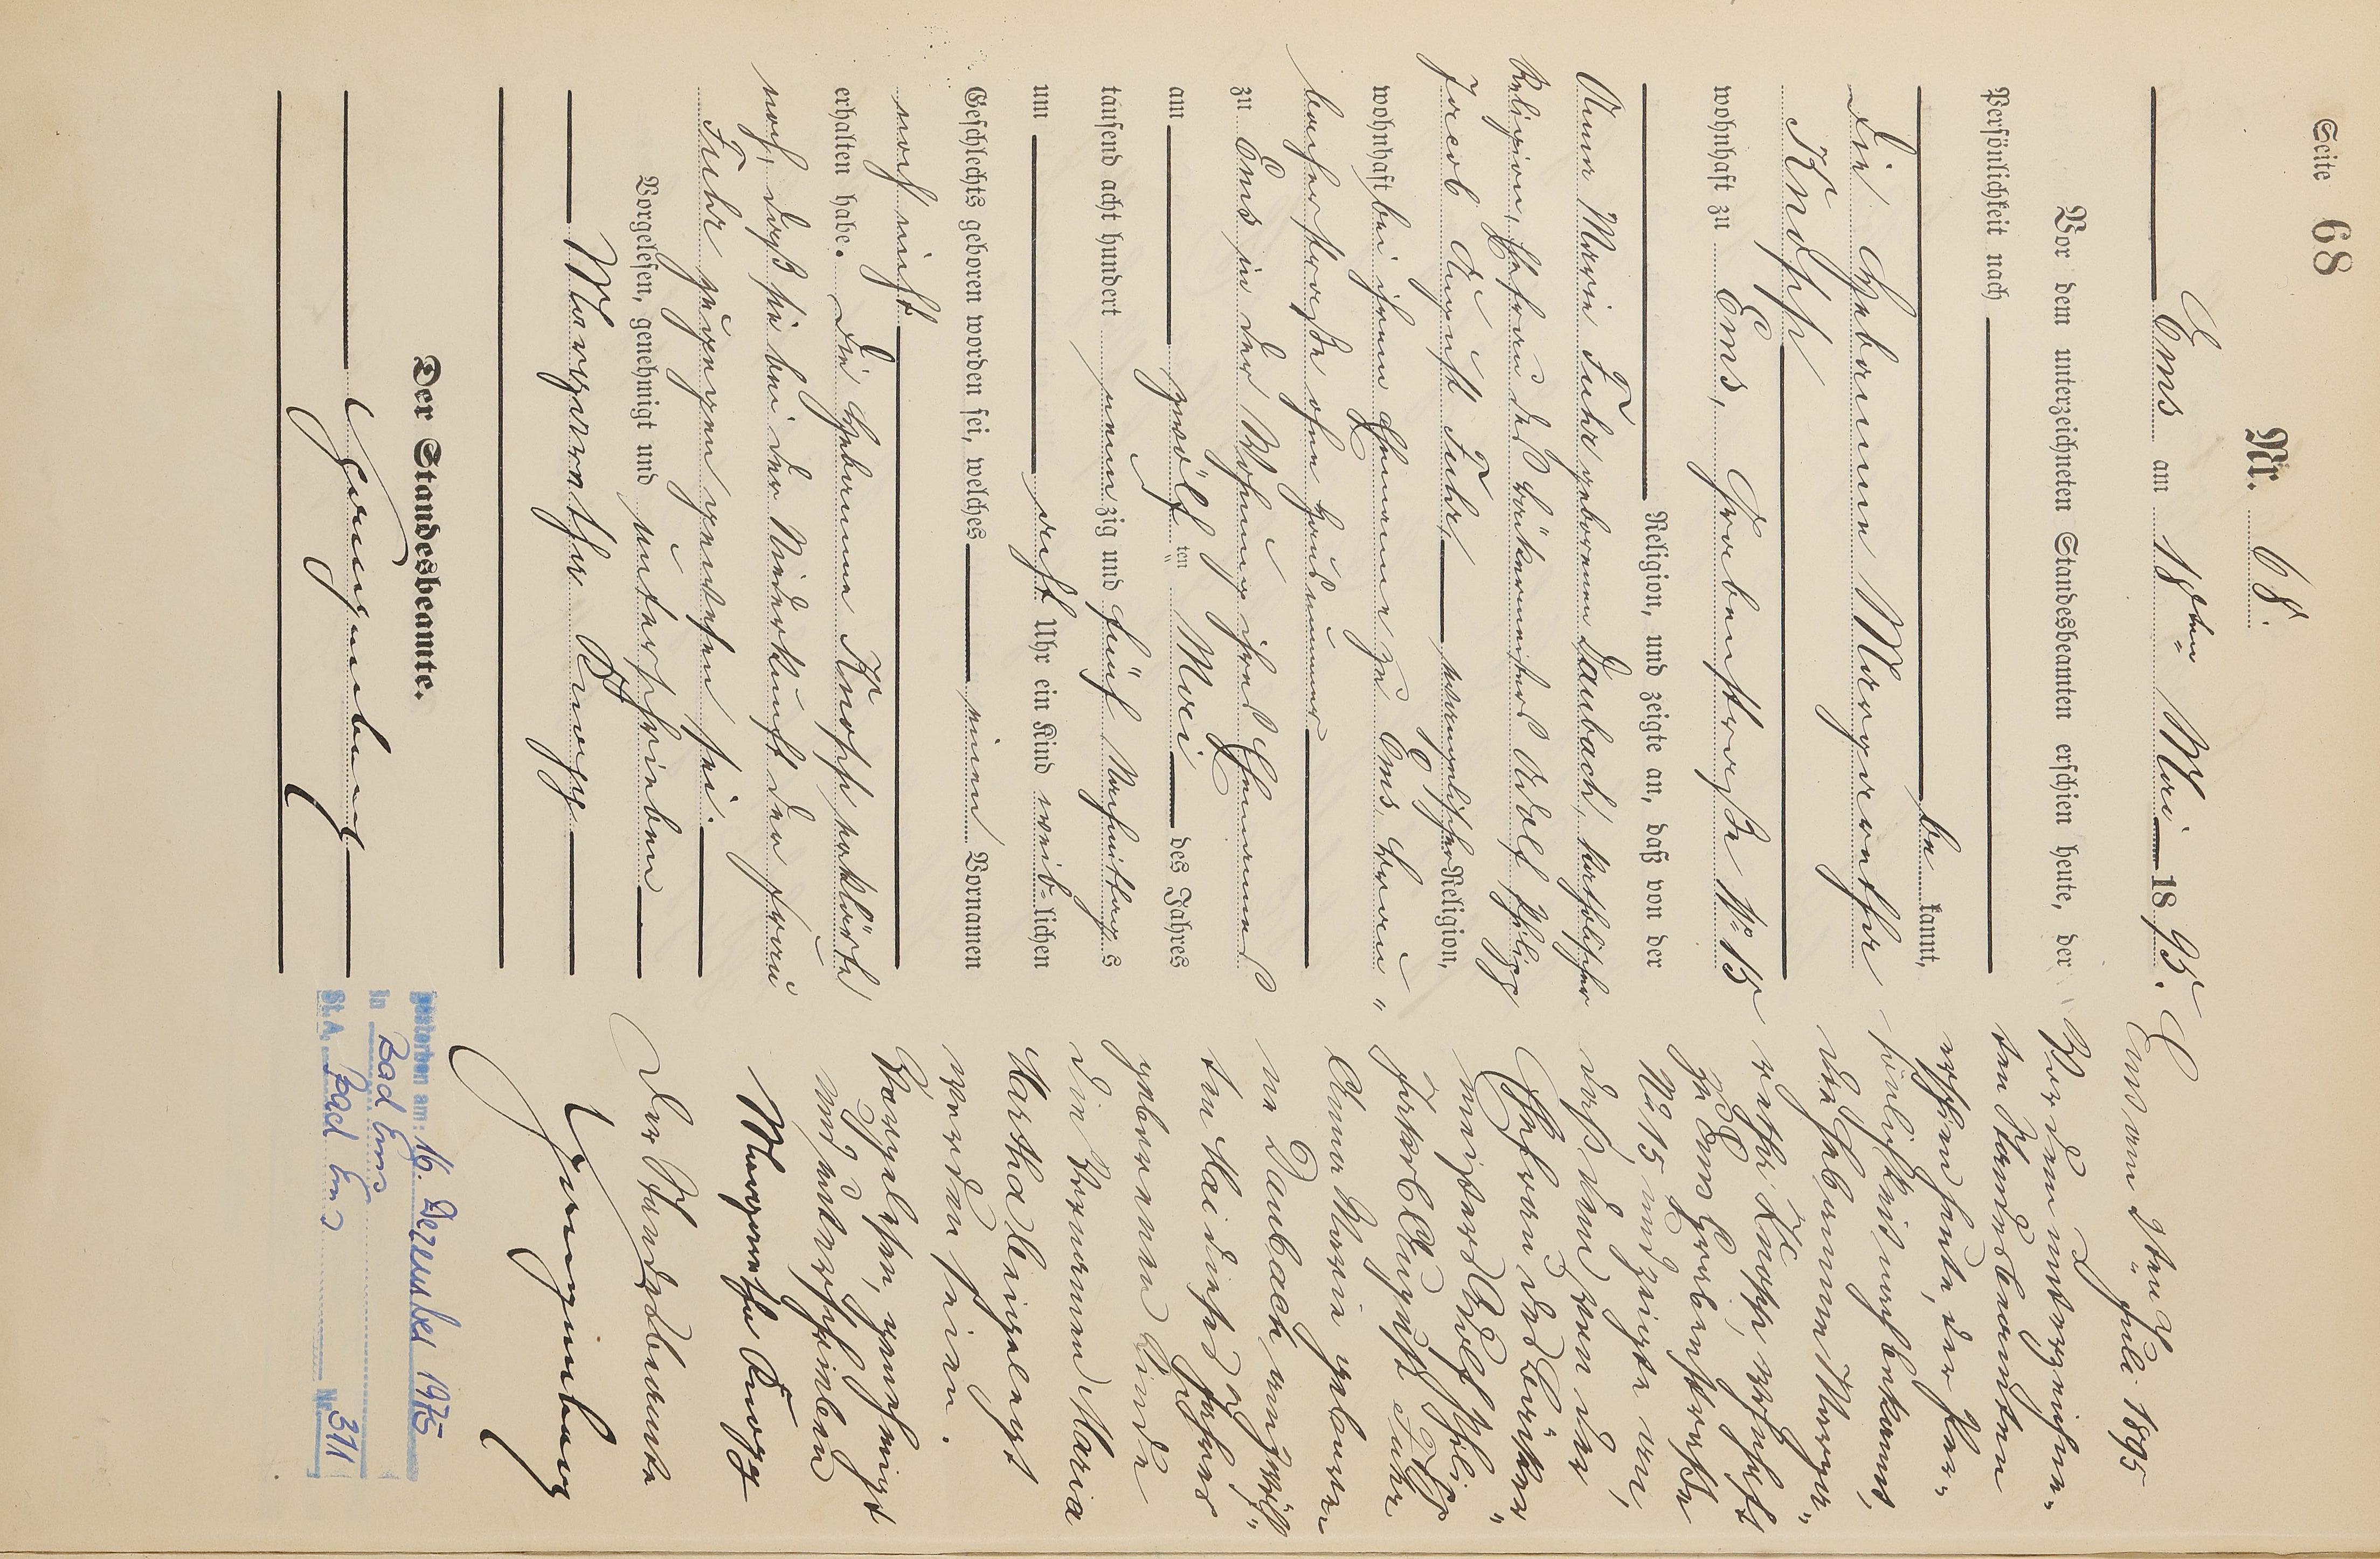 Seite 68
Nr. 68.
Ems am 18ten Mai 1895.
Vor dem unterzeichneten Standesbeamten erschien heute, der
Persönlichkeit nach
be kannt,
die Hebamme Margarethe
Knopp
wohnhaft zu Ems, Grabenstraße No 15
Religion, und zeigte an, daß von der
Anna Maria Fuhr geborenen Daubach, katholischer
Religion, Ehefrau des Bäckermeisters Adolf Philipp
Jacob August Fuhr evangelischer Religion,
wohnhaft bei ihrem Ehemanne zu Ems, Brau„
bacherstraße ohne Hausnummer
zu Ems in der Wohnung ihres Ehemannes
am zwölf ten Mai des Jahres
tausend acht hundert neunzig und fünf Nachmittags
um acht Uhr ein Kind weib=lichen
Geschlechts geboren worden sei, welches einen Vornamen
noch nicht
erhalten habe. Die Hebamme Knopp erklärte
noch, daß sie bei der Niederkunft der Frau
Fuhr zugegen gewesen sei.
Vorgelesen, genehmigt und unterschrieben
Margarethe Knopp
Der Standesbeamte.
Ems am 9ten Juli 1895
Vor dem unterzeichne„
ten Standesbeamten
erschien heute, der Per„
sönlichkeit nach bekannt,
die Hebamme Marga„
rethe Knopp, wohnhaft
zu Ems Grabenstraße
No 15, und zeigte an,
daß dem von der
Ehefrau des Bäcker„
meisters Adolf Philipp
Jacob August Fuhr
Anna Maria gebore„
ne Daubach am zwölf„
ten Mai dieses Jahres
geborenen Kinde
die Vornamen Maria
Martha beigelegt
worden seien.
Vorgelesen, genehmigt
und unterschrieben
Margarethe Knopp
Der Standesbeamte
gestorben am: 16. Dezember 1975
in Bad Ems
St.A. Bad Ems Nr. 311